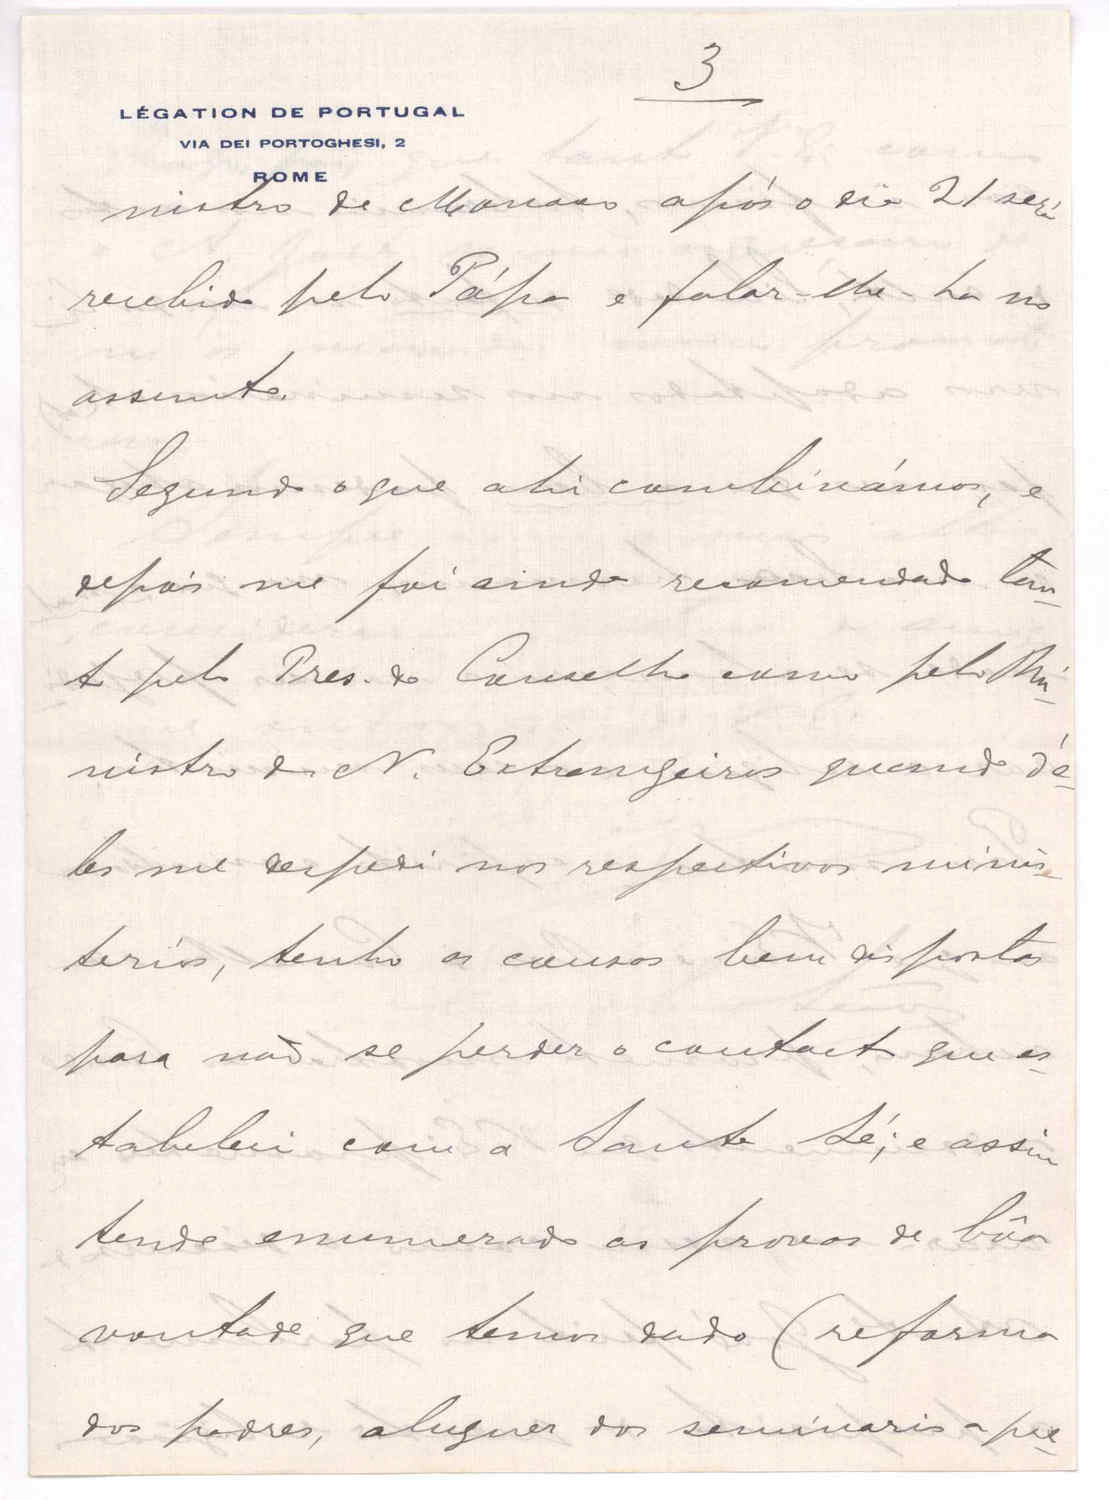 3
LÉGATION DE PORTUGAL
VIA DEI PORTOGHESI, 2
ROME
nistro de Monaco após o dia 21 será
recebido pelo Pápa e falar-lhe-ha no
assunto.
Segundo o que ahi combinámos, e
depois me foi ainda recomendado tan-
to pelo Pres. do Conselho como pelo Mi-
nistro de N. Estrangeiros quando dê-
les me despedi nos respectivos minis-
terios, tenho as cousas bem dispostas
para não se perder o contacto que es-
tabeleci com a Santa Sé; e assim
tendo enumerado as provas de bôa
vontade que temos dado (reforma
dos padres, aluguer dos seminarios a